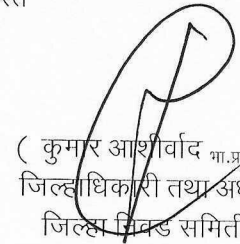 ( कुमार आशीर्वाद भा.प्र
जिल्हाधिकारी तथा अध
जिल्हा निवड समिती